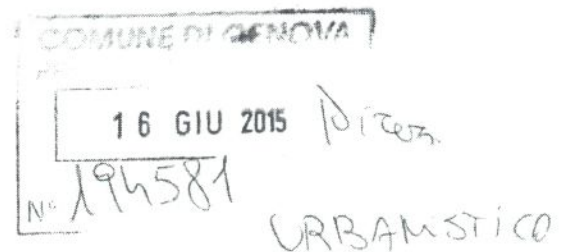 COMUNE DI GENOVA
16 GIU 2015
N° 194581
URBANISTICO